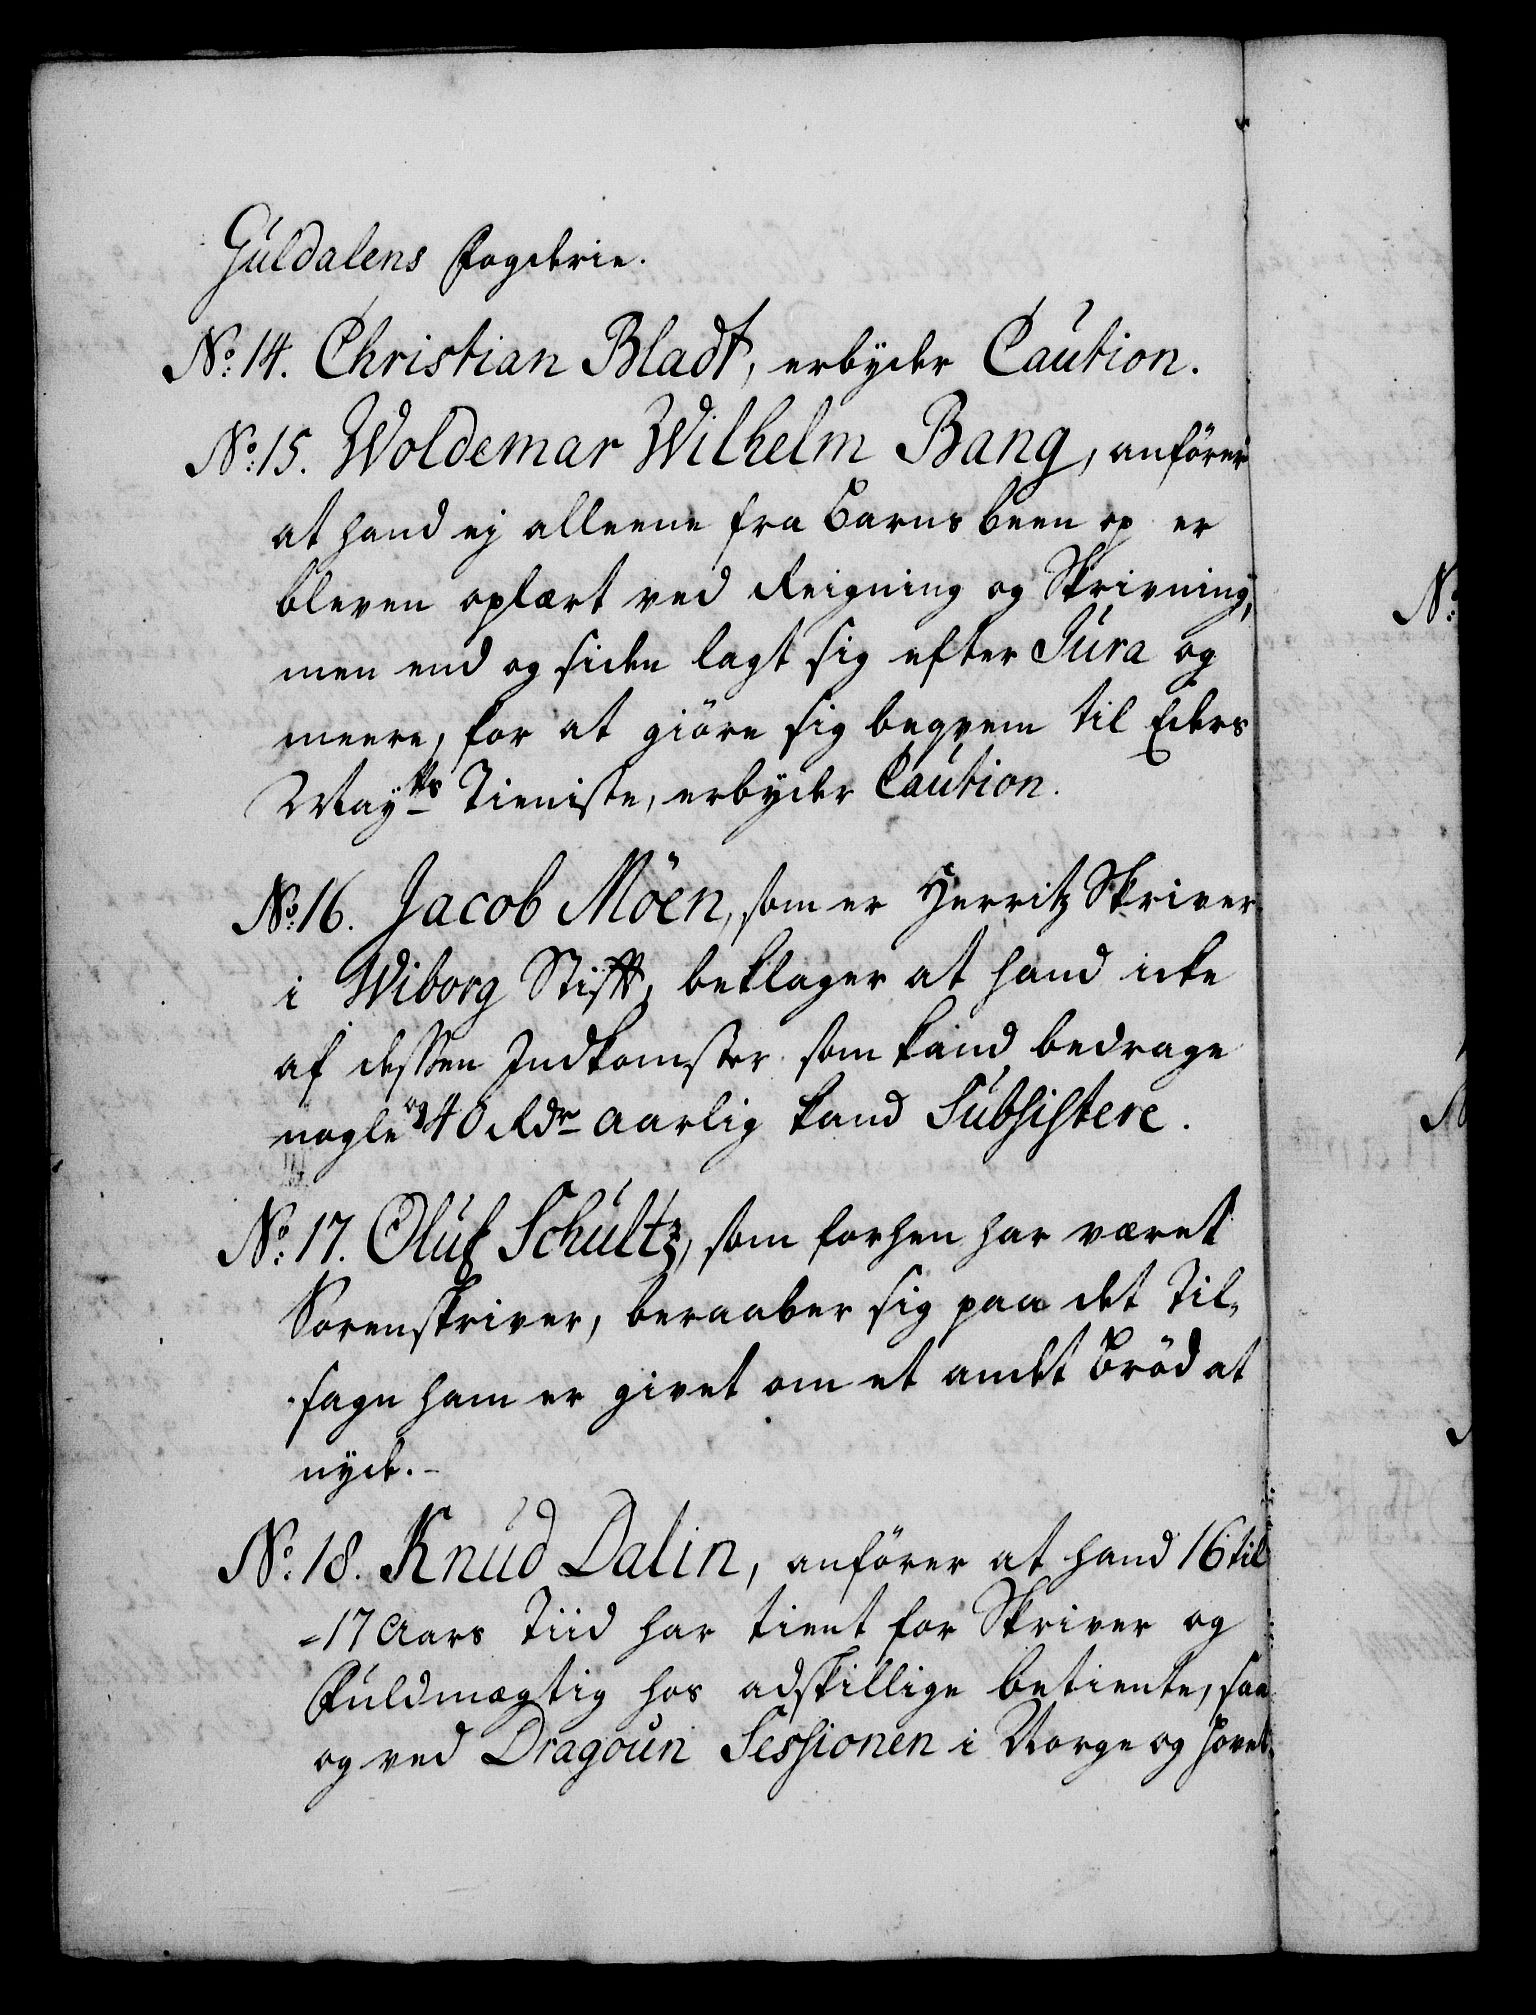 Guldalens Fogderie.
No: 14. Christian Bladt, erbyder Caution.
No: 15. Woldemar Wilhelm Bang, anfører
at hand ej alleene fra Barns been op er
bleven oplært ved Reigning og Skrivning,
men end og siden lagt sig efter Jura og
meere, for at giöre sig beqvem til Eders
Mayts Tieniste, erbyder Caution.
No: 16. Jacob Möen, som er Herritz Skriver
i Wiborg Stift, beklager at hand icke
af dessen Indkomster som kand bedrage
nogle og 40 Rdr aarlig kand Subsistere.
No: 17. Oluf Schultz, som forhen har været
Sorenskriver, beraaber sig paa det Til-
sagn ham er givet om et andet Brød at
nyde. -
No: 18. Knud Dalin, anfører at hand 16 til
-17 Aars Tiid har tient for Skriver og
Fuldmægtig hos adskillige betiente, saa
og ved Dragoun Sessionen i Norge og